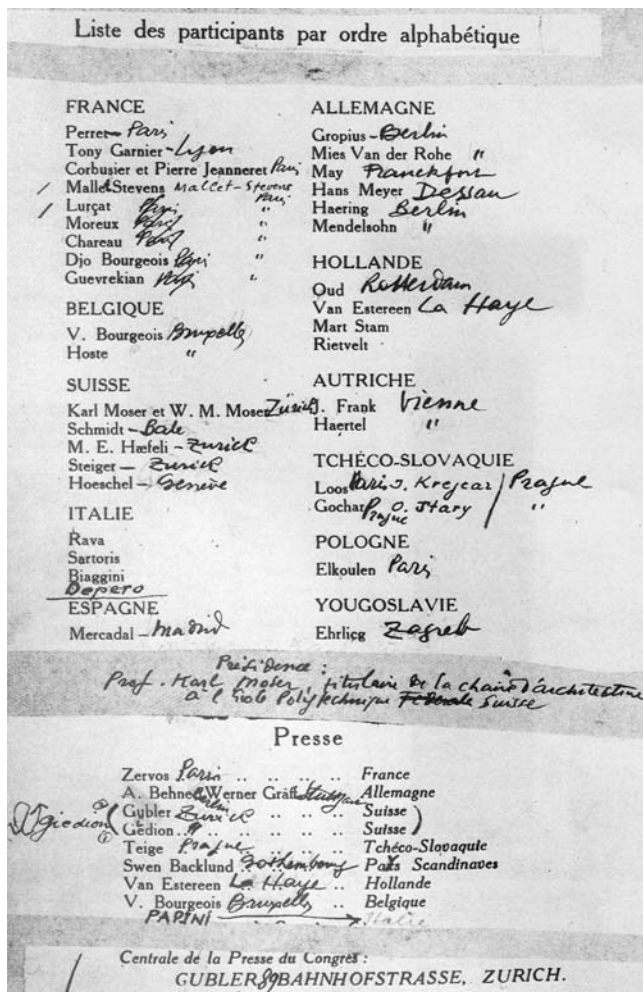 Liste des participants par ordre alphabétique
FRANCE
Perret - Paris
Tony Garnier - Lyon
Corbusier et Pierre Jeanneret Paris
Mallet Stevens Mallet-Stevens Paris
Lurçat Paris "
Moreux Paris "
Chareau Paris "
Djo Bourgeois Paris "
Guevrekian Paris "
BELGIQUE
V. Bourgeois Bruxelles
Hoste "
SUISSE
Karl Moser et W. M. Moser Zürich
Schmidt - Bale
M. E. Hæfeli - Zurich
Steiger - Zurich
Hoeschel - Genève
ITALIE
Rava
Sartoris
Biaggini
Depero
ESPAGNE
Mercadal - Madrid
ALLEMAGNE
Gropius - Berlin
Mies Van der Rohe "
May Franckfort
Hans Meyer Dessau
Haering Berlin
Mendelsohn "
HOLLANDE
Oud Rotterdam
Van Estereen La Haye
Mart Stam
Rietvelt
AUTRICHE
J. Frank Vienne
Haertel "
TCHÉCO-SLOVAQUIE
Loos Paris J. Krejcar / Prague
Gochar Prague O. Stary "
POLOGNE
Elkoulen Paris
YOUGOSLAVIE
Ehrliçg Zagreb
Présidence :
Prof. Karl Moser, titulaire de la chaire d'architecture
à l'Ecole Polytechnique Féderale Suisse
Presse
Zervos Paris .. .. .. .. France
A. Behne Berlin Werner Gräff Stuttgart Allemagne
Gubler Zurich .. .. .. Suisse
Giedion ( Gedion .. " .. .. .. Suisse )
Teige Prague .. .. .. Tchéco-Slovaquie
Swen Backlund Gothembourg Pays Scandinaves
Van Estereen La Haye .. Hollande
V. Bourgeois Bruxelles .. Belgique
PAPINI Italie
Centrale de la Presse du Congrès :
GUBLER 89 BAHNHOFSTRASSE, ZURICH.